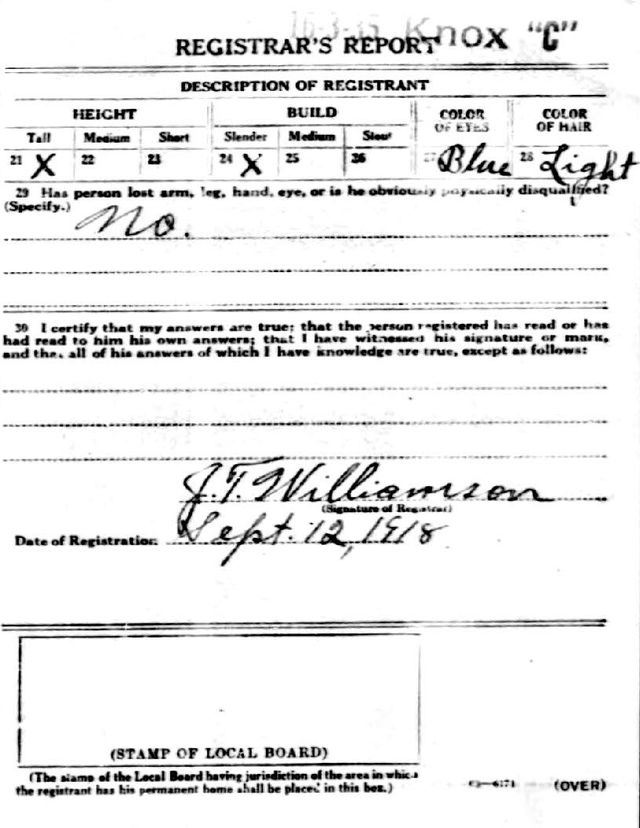 16-3-35 Knox "C"
REGISTRAR'S REPORT
DESCRIPTION OF REGISTRANT
HEIGHT BUILD COLOR OF EYES COLOR OF HAIR
Tall Medium Short Slender Medium Stout
21 X 22 23 24 X 25 26 27 Blue 28 Light
29 Has person lost arm, leg, hand, eye, or is he obviously physically disqualified?
(Specify.) No.
30 I certify that my answers are true; that the person registered has read or has
had read to him his own answers; that I have witnessed his signature or mark,
and that all of his answers of which I have knowledge are true, except as follows:
J. T. Williamson
(Signature of Registrar)
Date of Registration Sept. 12, 1918
(STAMP OF LOCAL BOARD)
(The stamp of the Local Board having jurisdiction of the area in which
the registrant has his permanent home shall be placed in this box.)
(OVER)